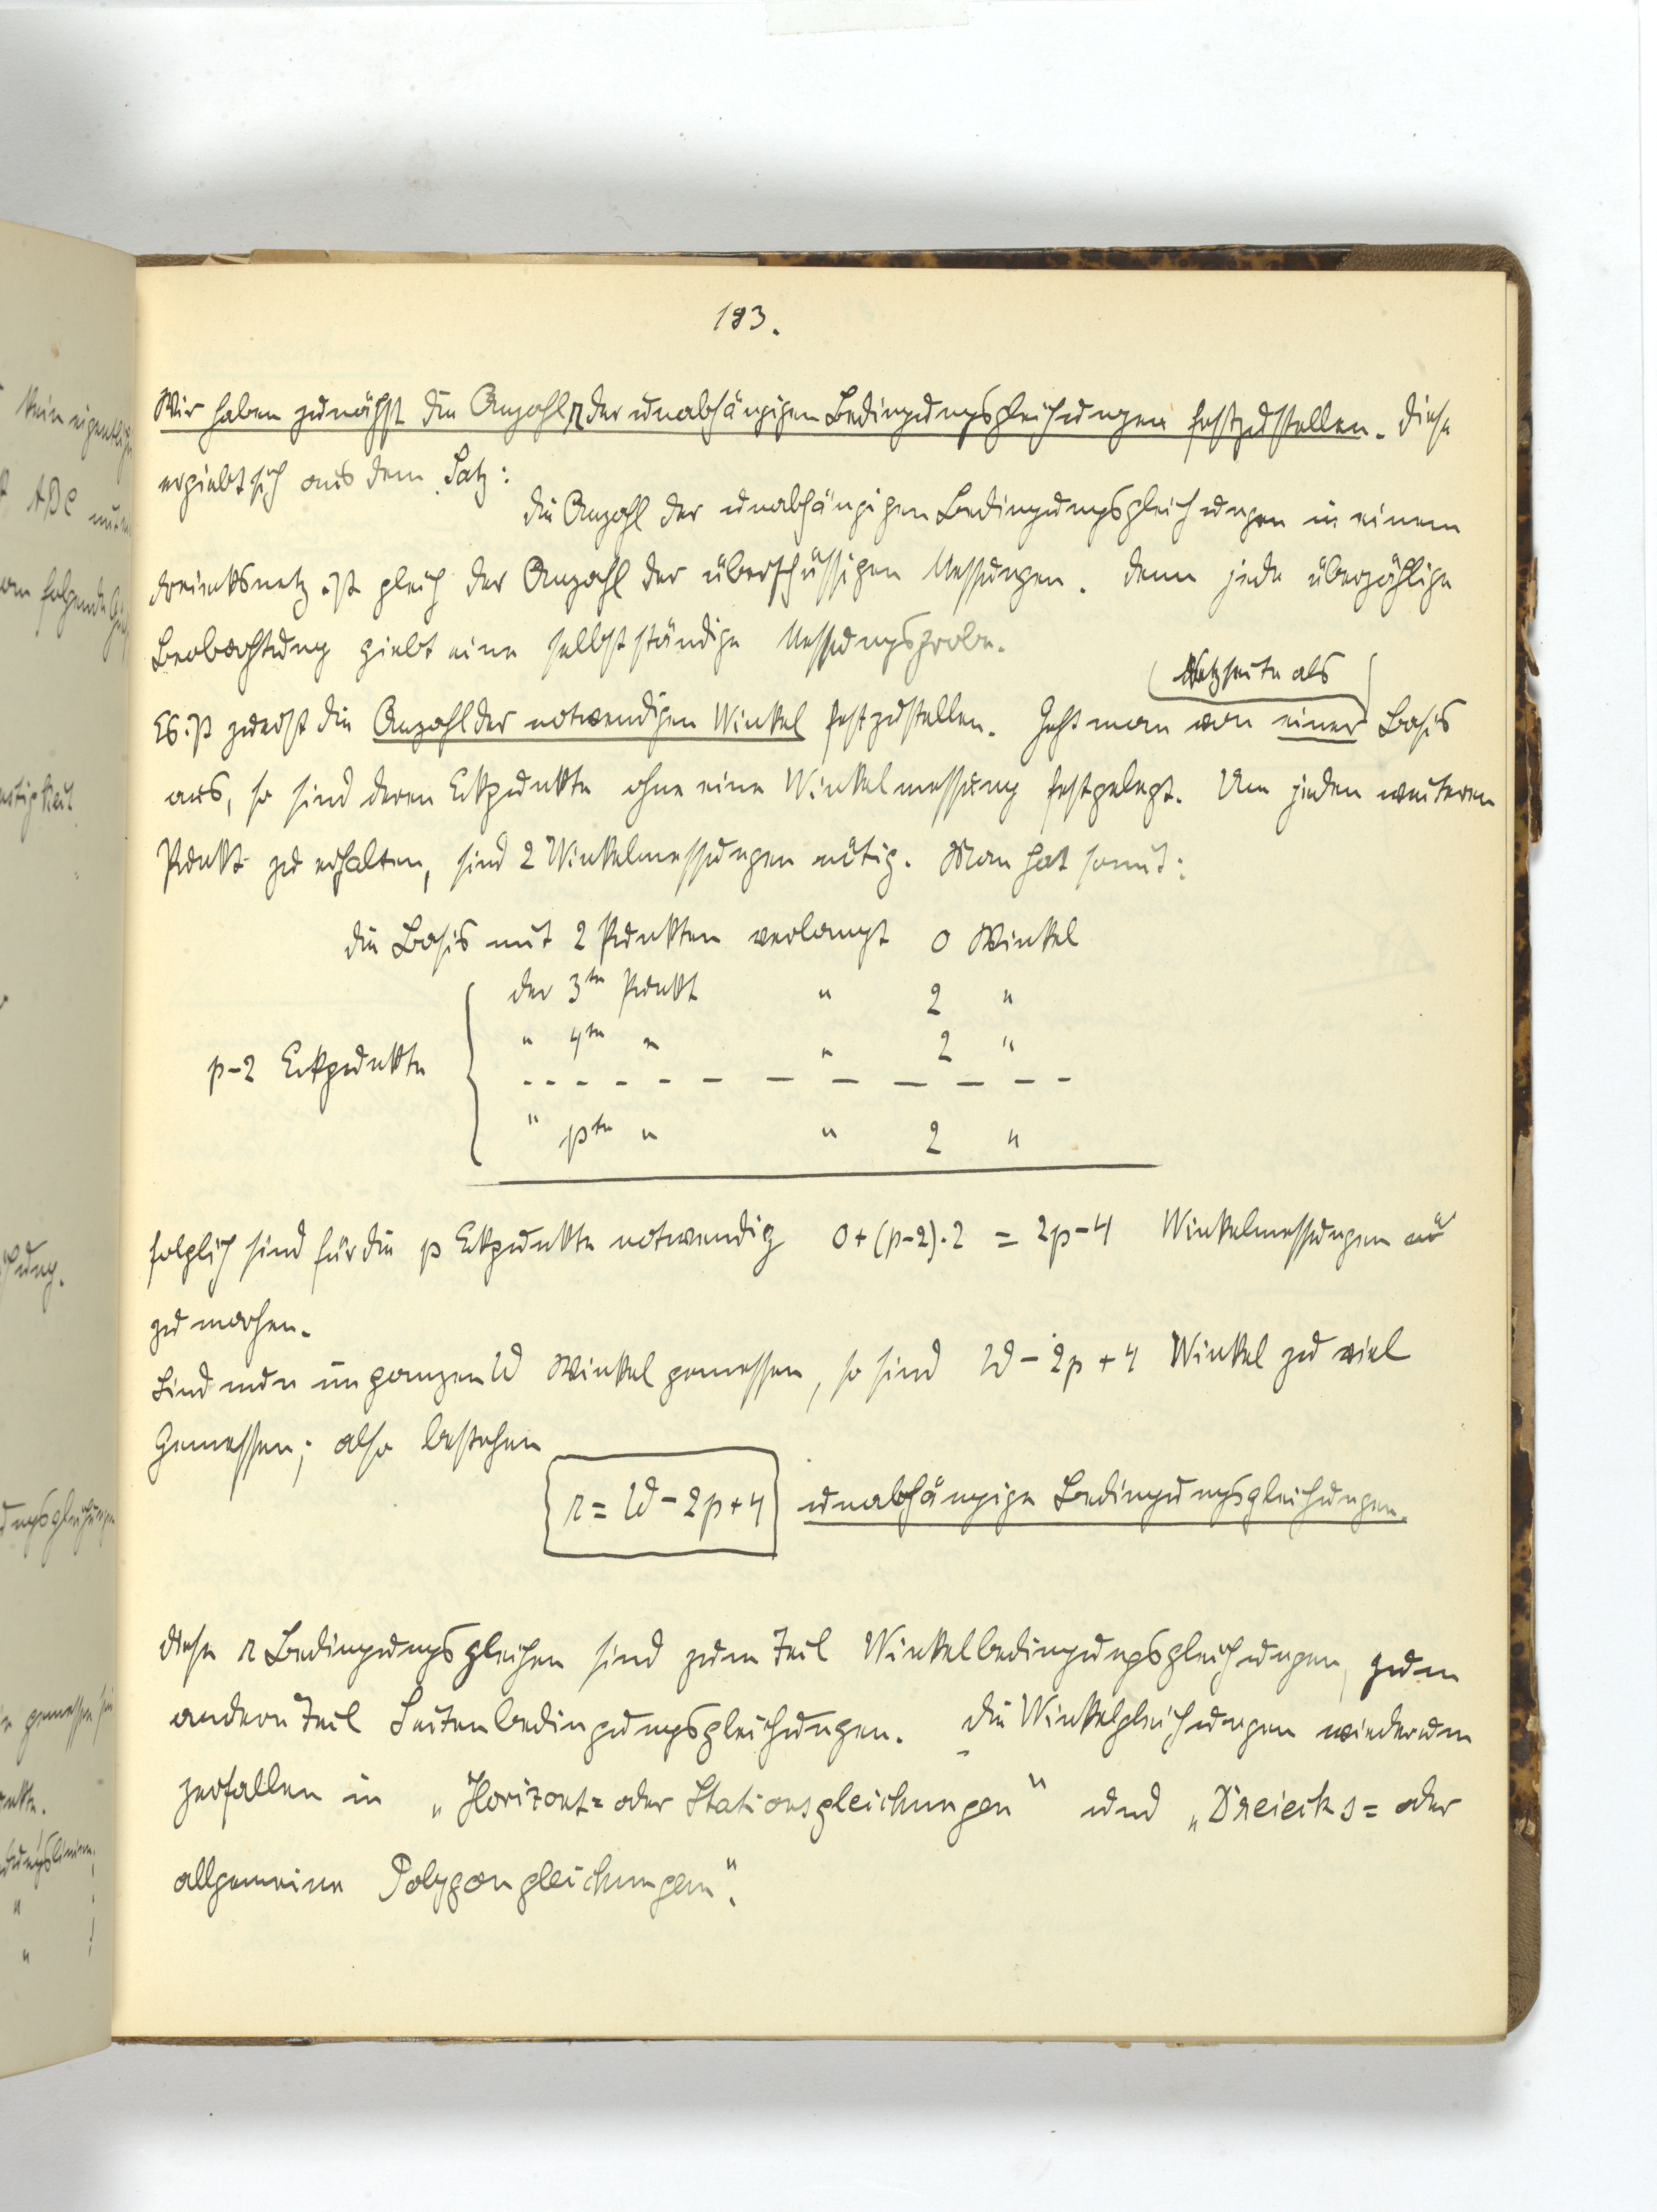 193.
Wir haben zunächst die Anzahl r der unabhängigen Bedingungsgleichungen festzustellen. Diese
ergiebt sich aus dem Satz:
Die Anzahl der unabhängigen Bedingungsgleichungen in einem
Dreiecksnetz ist gleich der Anzahl der überschüssigen Messungen. Denn jede überzählige
Beobachtung giebt eine selbstständige Messungsprobe.
Netzseite als
Es ist zuerst die Anzahl der notwendigen Winkel festzustellen. Geht man von einer Basis
aus, so sind deren Eckpunkte ohne eine Winkelmessung festgelegt. Um jeden weiteren
Punkt zu erhalten, sind 2 Winkelmessungen nötig. Man hat somit:
die Basis mit 2 Punkten verlangt 0 Winkel
der 3te Punkt " 2 "
" 4te " " 2 "
p-2 Eckpunkte
" pte " " 2 "
folglich sind für die p Eckpunkte notwendig 0+(p-2)·2 = 2p-4 Winkelmessungen
zu machen.
Sind nun im ganzen W Winkel gemessen, so sind W-2p+4 Winkel zu viel
Gemessen; also bestehen
r = W-2p+4 unabhängige Bedingungsgleichungen.
Diese r Bedingungsgleichen sind zum Teil Winkelbedingungsgleichungen, zum
andern Teil Seitenbedingungsgleichungen. Die Winkelgleichungen wiederum
zerfallen in „Horizont= oder Stationsgleichungen" und „Dreiecks= oder
allgemeine Polygongleichungen".
Kein eigentlich
ABC
folgende
gemessen